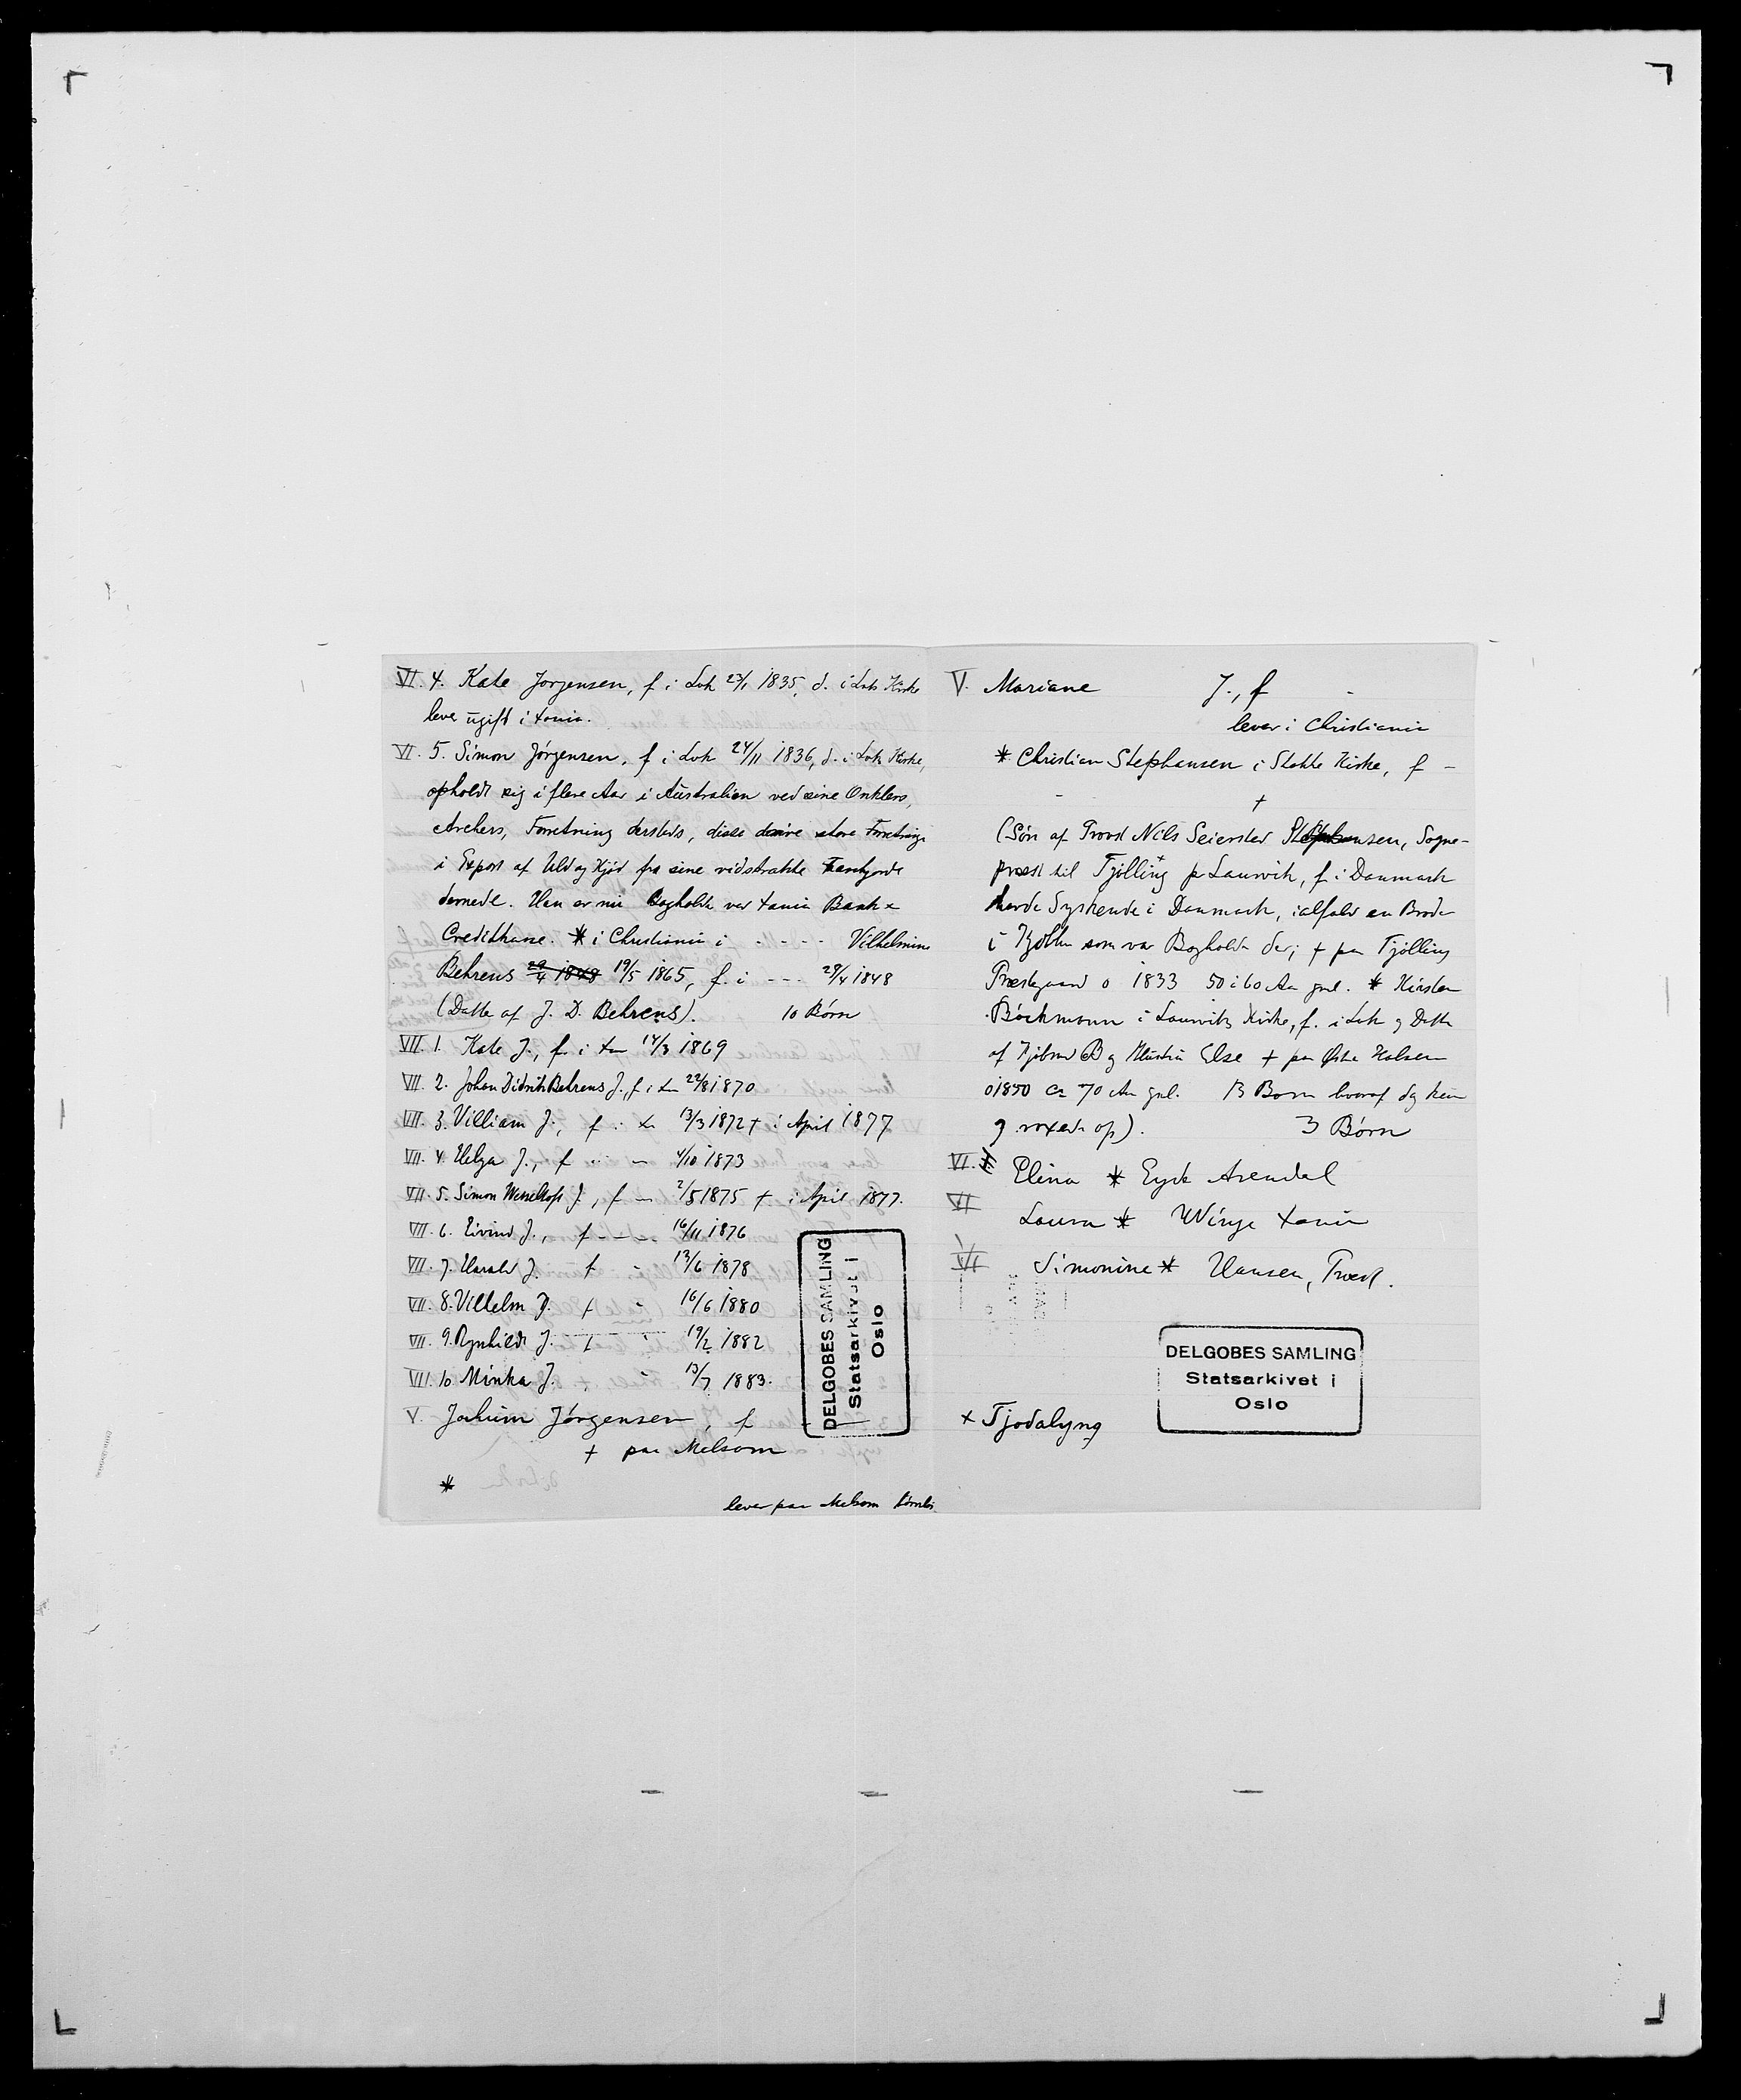 VI. 4. Kate Jørgensen, f i Lvk 23/1 1835, d. i Lvks Kirke
lever ugift i Xania.
VI. 5. Simon Jørgensen, f i Lvk 24/11 1836, d. i Lvk Kirke,
opholdt sig i flere Aar i Australien ved sine Onklers,
Archers, Forretning dersteds, disse drive store Forretninger
i Export af Uld og Kjød fra sine vidstrakte
dernede. Han er nu Bogholder ved Xania Bank &
Creditkasse. * i Christiania i - - - - Vilhelmine
Behrens 29/4 1848 19/5 1865, f. i - - - 29/4 1848
(Datter af J. D. Behrens). 10 Børn
VII. 1. Kate J., f. i Xa 14/3 1869
VII. 2. Johan Didrik Behrens J., f i Xa 22/8 1870
VII. 3. Villiam J., f i Xa 13/3 1872 + i April 1877
VII. 4. Helga J., f - - - 4/10 1873
VII. 5. Simon J., f - 2/5 1875 + i April 1877.
VII. 6. Eivind J., f - - - 16/11 1876
VII. 7. Harald J. f - 13/6 1878
VII. 8. Vilhelm J. f - 16/6 1880
VII. 9. Ragnhild J. f - 19/2 1882
VII. 10 Minka J. - 13/7 1883.
V. Jokum Jørgensen, f -
+ paa Melsom
*
lever paa Melsom
DELGOBES SAMLING
Statsarkivet i
Oslo
V. Mariane J., f -
lever i Christiania
* Christian Stephansen i Stokke Kirke, f -
- +
(Søn af Provst Nils Seiersted Stephansen, Sogne-
præst til Tjølling + pr Laurvik, f. i Danmark
havde Syskende i Danmark, ialfald en Broder
i som var Bogholder der; + paa Tjølling
Præstegaard o 1833 50 i 60 Aar gml. * Kirsten
Bøckmann i Laurviks Kirke, f. i Lvk og Datter
af Kjøbmd B og Hustru Else + paa Østre Halsen
o 1850 ca 70 Aar gml. 13 Børn hvoraf dog kun
9 voxede op). 3 Børn
VI. Elina * Eyde Arendal
VI Laura * Winge Xania
VI Simonine * Hansen, Præst.
DELGOBES SAMLING
Statsarkivet i
Oslo
+ Tjodalyng